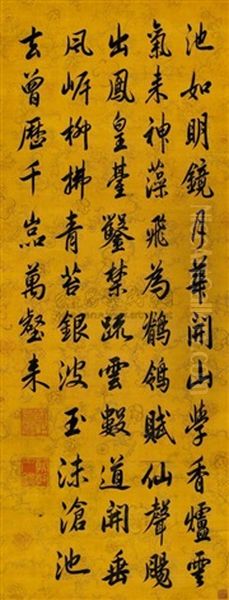 池如明鏡月華開山學香爐雲
氣来神藻飛為鶺鴒賦仙聲賜
出鳳皇臺鑿禁疏雲數道開垂
風岸柳拂青苔銀波玉沫滄池
去曾歷千嵒萬壑来